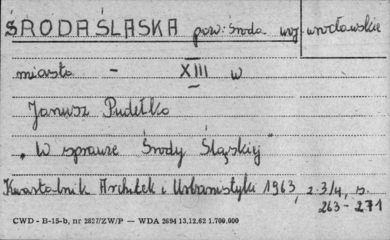 ŚRODA ŚLĄSKA pow: Środa woj wrocławskie
miasta - XIII w
Janusz Pudełko
"W sprawie Środy Śląskiej"
Kwartalnik Architek i Urbanistyki 1963, z. 3/4, s.
263-271
CWD - B-15-b, nr 2827/ZW/P — WDA 2694 13.12.62 1.700.000